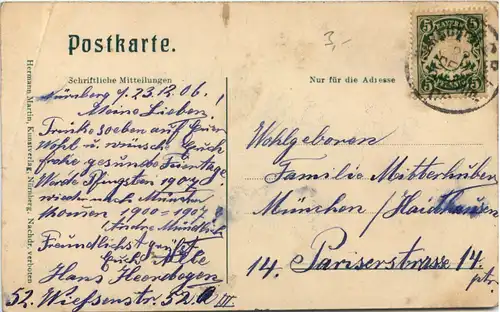 Postkarte.
3,-
5 BAYERN 5
Schriftliche Mitteilungen
Nur für die Adresse
Nürnberg d/23.12.06.
Meine Lieben.
Trinke soeben auf Euer
Wohl u. wünsche Euch
frohe gesunde Feiertage
Werde Pfingsten 1907
wieder nach München
kommen 1900=1907
Andre Mündlich
Freundlichst grüßt
Euch Alle
Hans Heerdegen
52. Wiesenstr. 52.a III
Wohlgeboren
Familie Mitterhuber
München / Haidhausen
14. Pariserstrasse 14.
ptr.
Hermann Martin, Kunstverlag, Nürnberg. Nachdr. verboten